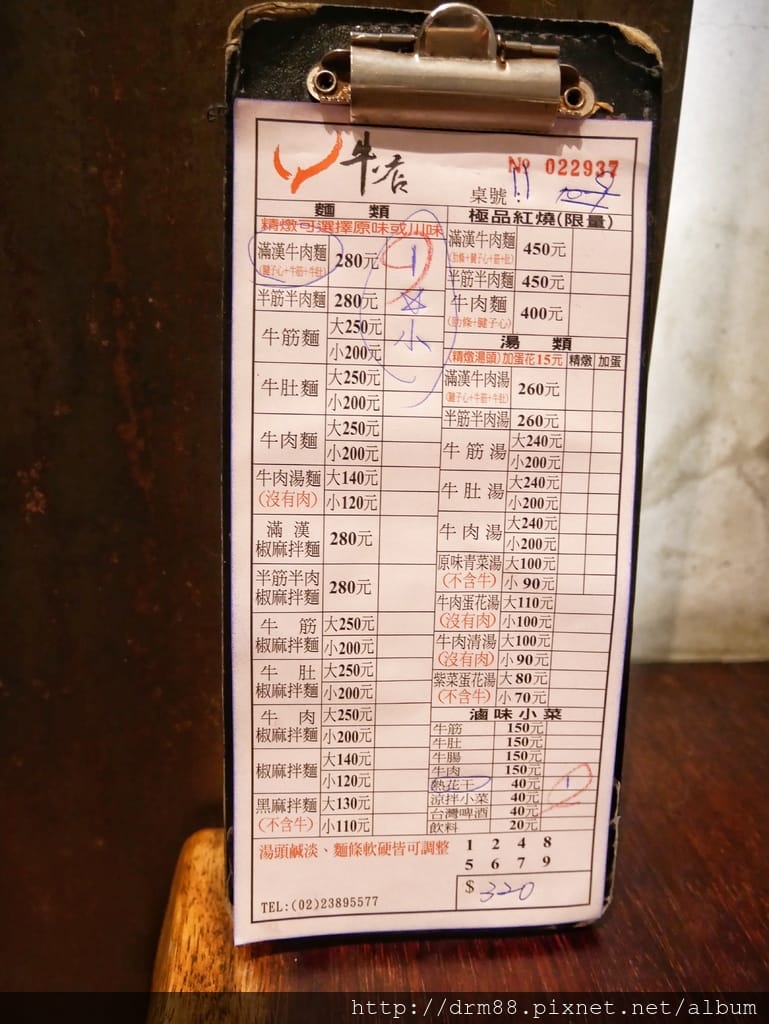 牛店
№ 022937
桌號: 11
麵 類
精燉可選擇原味或川味
滿漢牛肉麵 280元 1
(腱子心+牛筋+牛肚)
半筋半肉麵 280元
小
牛筋麵 大250元
小200元
牛肚麵 大250元
小200元
牛肉麵 大250元
小200元
牛肉湯麵 大140元
(沒有肉) 小120元
滿漢
椒麻拌麵 280元
半筋半肉
椒麻拌麵 280元
牛筋 大250元
椒麻拌麵 小200元
牛肚 大250元
椒麻拌麵 小200元
牛肉 大250元
椒麻拌麵 小200元
椒麻拌麵 大140元
小120元
黑麻拌麵 大130元
(不含牛) 小110元
極品紅燒(限量)
滿漢牛肉麵 450元
(肋條+腱子心+筋+肚)
半筋半肉麵 450元
牛肉麵 400元
(肋條+腱子心)
湯 類
(精燉湯頭)加蛋花15元 精燉 加蛋
滿漢牛肉湯 260元
(腱子心+牛筋+牛肚)
半筋半肉湯 260元
牛筋湯 大240元
小200元
牛肚湯 大240元
小200元
牛肉湯 大240元
小200元
原味青菜湯 大100元
(不含牛) 小 90元
牛肉蛋花湯 大110元
(沒有肉) 小100元
牛肉清湯 大100元
(沒有肉) 小 90元
紫菜蛋花湯 大 80元
(不含牛) 小 70元
滷味小菜
牛筋 150元
牛肚 150元
牛腸 150元
牛肉 150元
熱花干 40元 1
涼拌小菜 40元
台灣啤酒 40元
飲料 20元
湯頭鹹淡、麵條軟硬皆可調整
1 2 4 8
5 6 7 9
$ 320
TEL:(02)23895577
http://drm88.pixnet.net/album